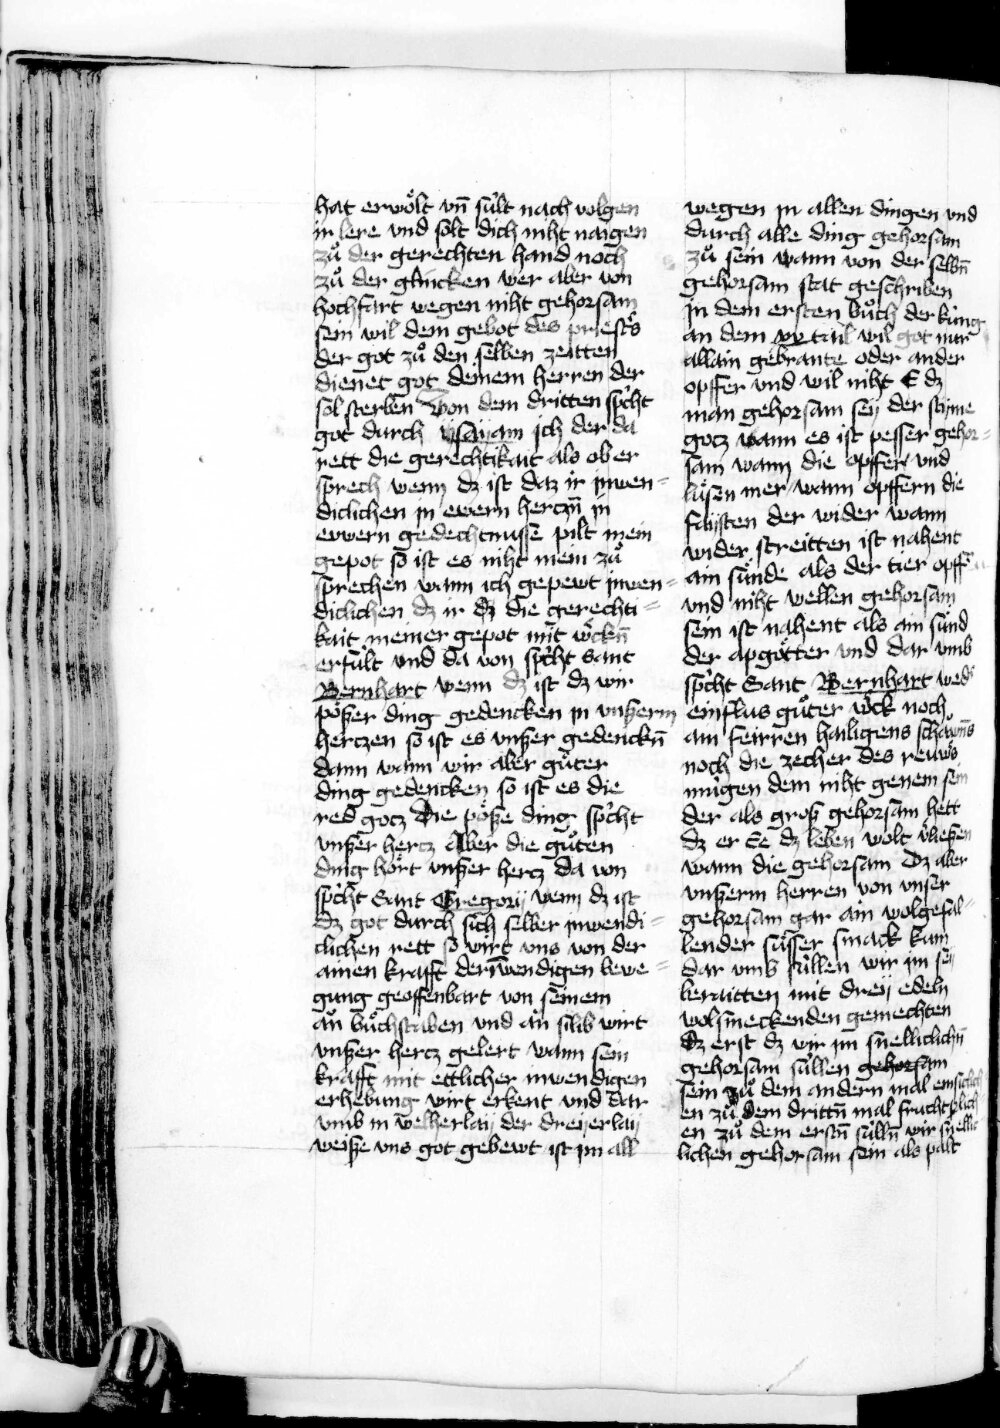 hat erwölt vn̄ sult nach volgen
ir lere vnd solt dich niht naigen
zů der gerechten hand noch
zů der glincken wer aber von
hochfart wegen niht gehorsam
sein wil dem gebot des priest's
der got zů den selben zeitten
dienet got deinem herren der
sol sterben Von dem dritten sp'cht
got durch ysayam ich der da
rett die gerechtikait als ob er
sprech wenn dz ist daz ir inwen=
diclichen in ewern herczn̄ in
ewern gedechtnusse pilt mein
gepot so ist es niht mein zů
sprechen wann ich gepewt inwen=
diclichen dz ir dz die gerechti=
kait meiner gepot mit w'ckn̄
erfult vnd da von sp'cht Sant
Bernhart wenn dz ist dz wir
pößer ding gedencken in vnßerm
herczen so ist es vnßer gedenckn̄
dann wann wir aber gůter
ding gedencken so ist es die
red gocz Die pöße ding sp'cht
vnßer hercz Aber die gůten
ding hört vnßer hercz da von
sp'cht Sant Gregorij wenn dz ist
dz got durch sich selber inwendi=
clichen rett so wirt vns von der
ainen krafft der inwendigen bewe=
gung geoffenbart von seinem
an bůchstaben vnd an silib wirt
vnßer hercz gelert wann sein
krafft mit ettlicher inwendigen
erhebung wirt erkent vnd dar
vmb in welherlaij der dreijerlaij
weiße vns got gebewt ist im all
wegen in allen dingen vnd
durch alle ding gehorsam
zů sein wann von der selbn̄
gehorsam stat geschriben
in dem ersten bůch der küng
an dem xv tail wil got nur
allain gebrante oder ander
opffer vnd wil niht E dz
man gehorsam seij der stýme
gocz wann es ist pesser gehor=
sam wann die opffer vnd
lüsen mer wann opffern die
faijsten der wider wann
wider streitten ist nahent
ain sünde als der tier opff
vnd niht wellen gehorsam
sein ist nahent als ain sünd
der apgötter vnd dar vmb
sp'cht Sant Bernhart wed'
einflus gůter w'ck noch
am feirren hailigens schawn̄s
noch die zecher des rewes
mügen dem niht genem sein
der als groß gehorsam hett
dz er Ee dz leben wolt v'ließen
wann die gehorsam Dz aber
vnßerm herren von vnser
gehorsam gar ain wolgefal=
lender süsser smack kum
dar vmb süllen wir im sei
beraitten mit dreij edeln
wolsmeckenden gemechten
Dz erst dz wir im snelliclichn̄
gehorsam süllen gehorsam
sein zů dem andern mal einfelticlich
en zů dem drittn̄ mal fruchtperlich
en zů dem erstn̄ sülln̄ wir snellic
lichen gehorsam sein als palt